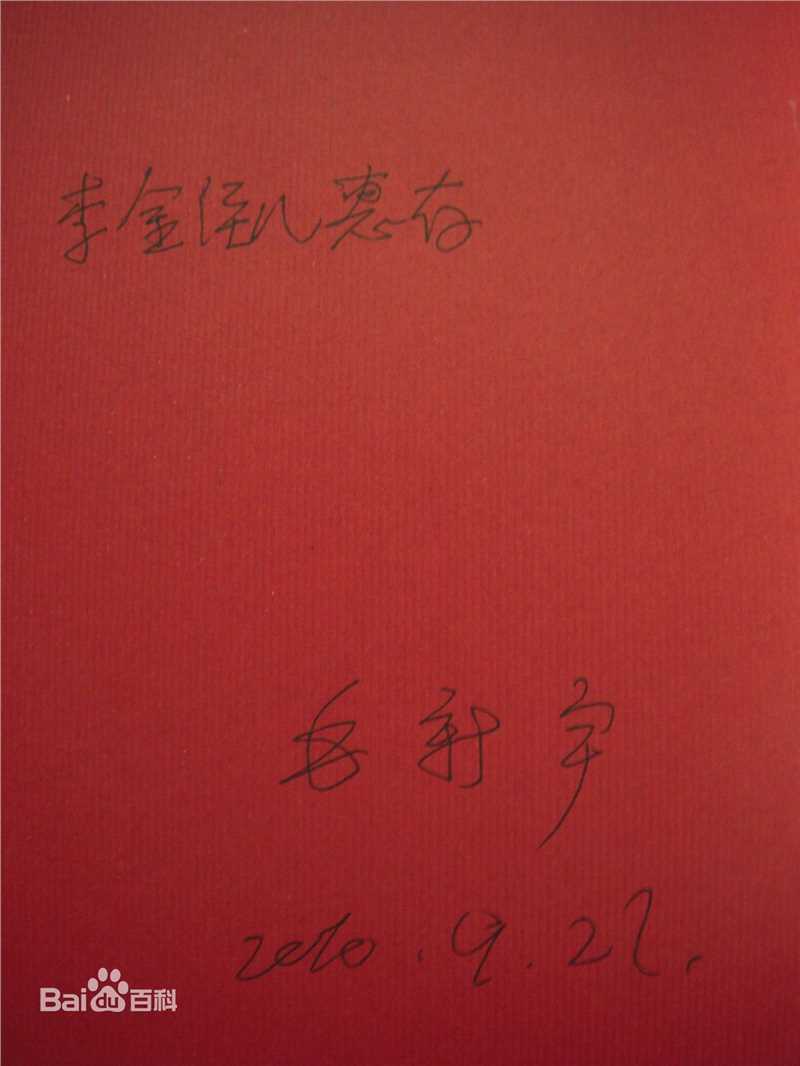 李金 惠存
毛新宇
2010.9.22.
Bai du 百科